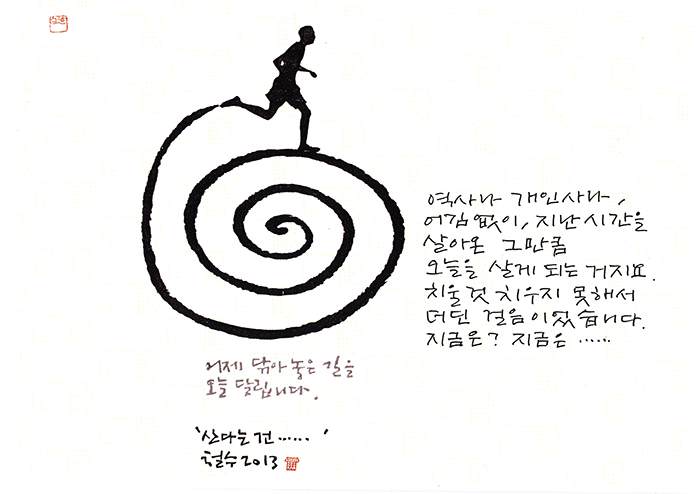 역사나 개인사나,
어김없이, 지난 시간을
살아온 그만큼
오늘을 살게 되는 거지요.
치울 것 치우지 못해서
더딘 걸음이었습니다.
지금은? 지금은 ......
어제 닦아 놓은 길을
오늘 달립니다.
'산다는 건......'
철수 2013